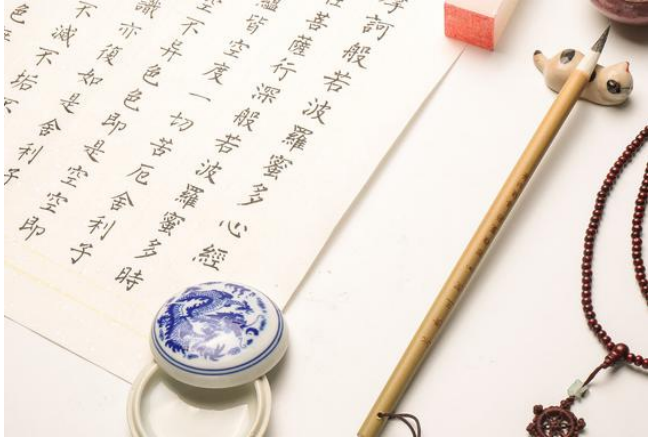 訶般若波羅蜜多心經
菩薩行深般若波羅蜜多時
蘊皆空度一切苦厄舍利子
空不異色色即是空空即
識亦復如是舍利子
不滅不垢不
色